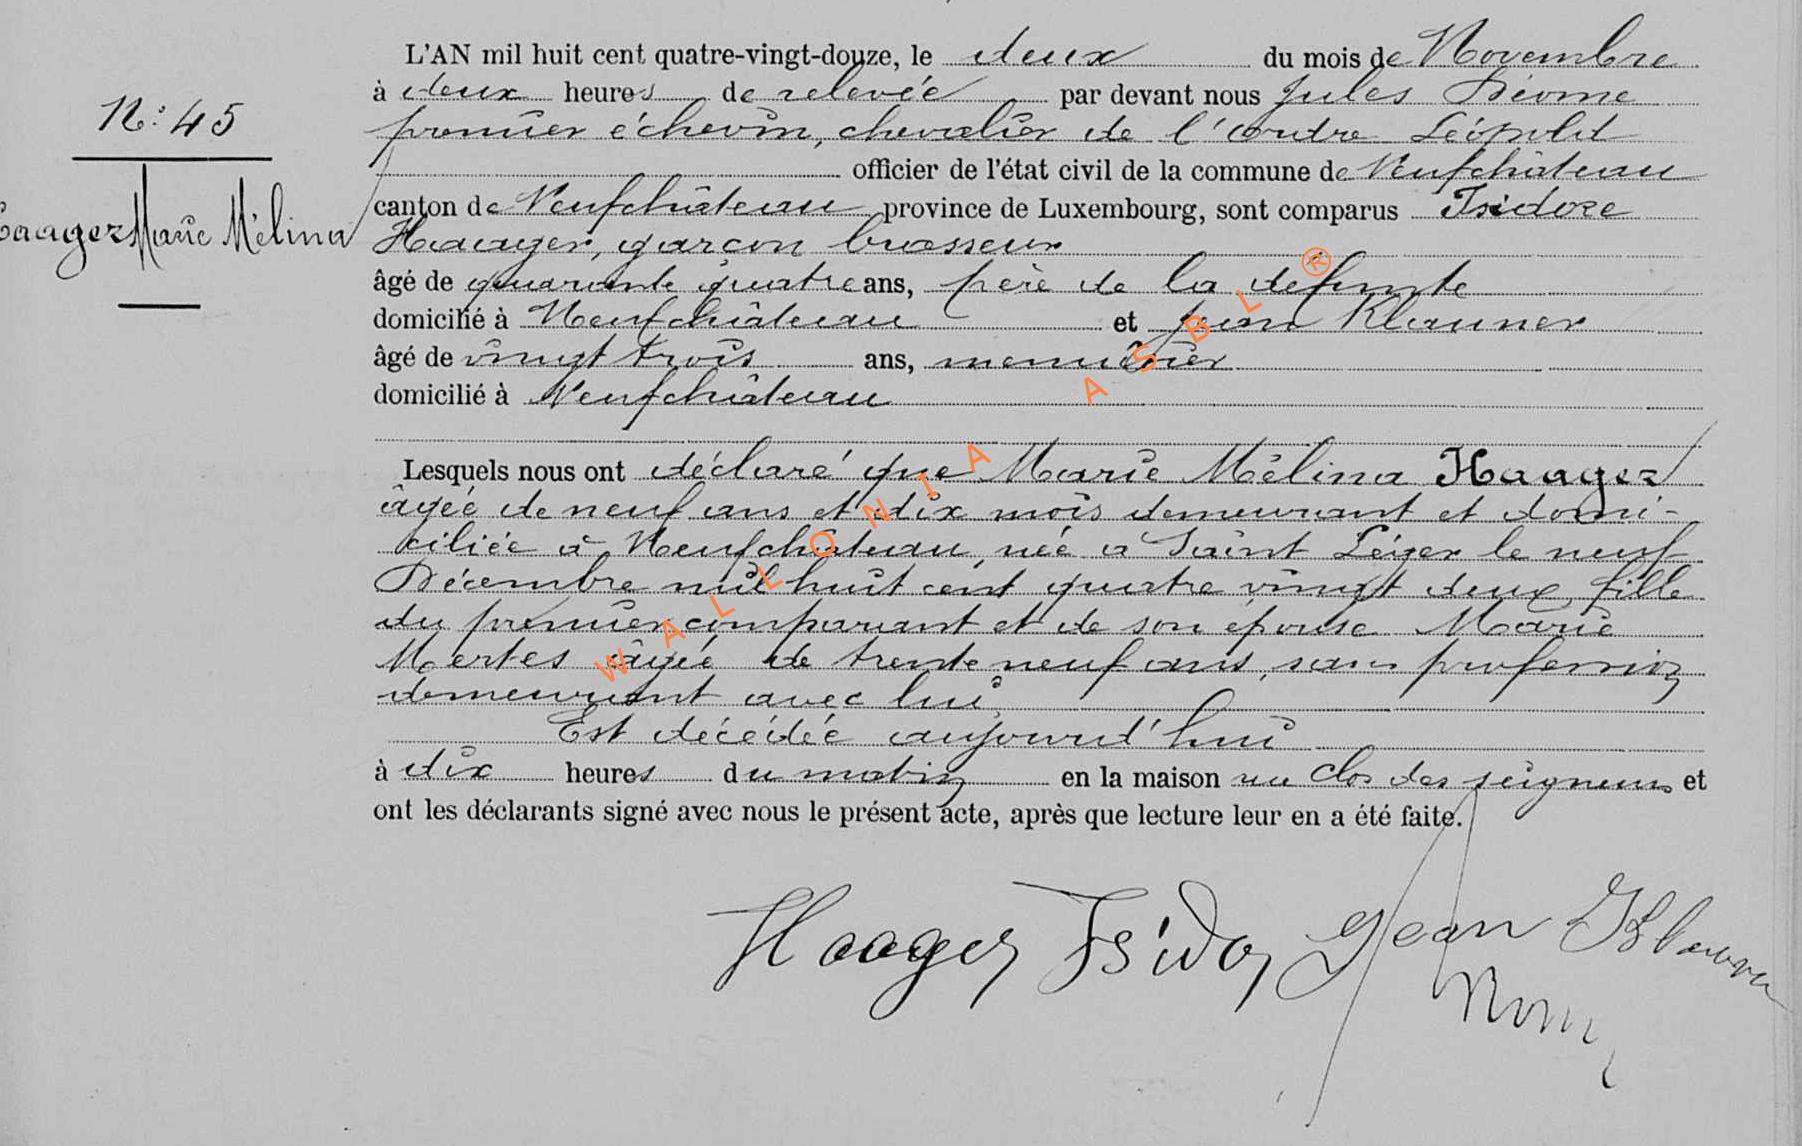 L'AN mil huit cent quatre-vingt-douze, le deux du mois de Novembre
à deux heures de relevée par devant nous Jules
premier échevin, chevalier de l'ordre Léopold
officier de l'état civil de la commune de Neufchâteau
canton de Neufchâteau province de Luxembourg, sont comparus Isidore
Haager, garçon brasseur
âgé de quarante quatre ans, père de la defunte
domicilié à Neufchâteau et Jean Klauner
âgé de vingt trois ans, menuisier
domicilié à Neufchâteau
N: 45
Haager Marie Mélina
Lesquels nous ont déclaré que Marie Mélina Haager
âgée de neuf ans et dix mois demeurant et domi-
ciliée à Neufchâteau, née à Saint Léger le neuf
Décembre mil huit cent quatre vingt deux, fille
du premier comparant et de son épouse Marie
Mertes âgée de trente neuf ans, sans profession
demeurant avec lui
Est décédée aujourd'hui
à dix heures du matin en la maison au clos des seigneurs et
ont les déclarants signé avec nous le présent acte, après que lecture leur en a été faite.
Haager Isidor Jean Klauner
WALLONIA ASBL ®